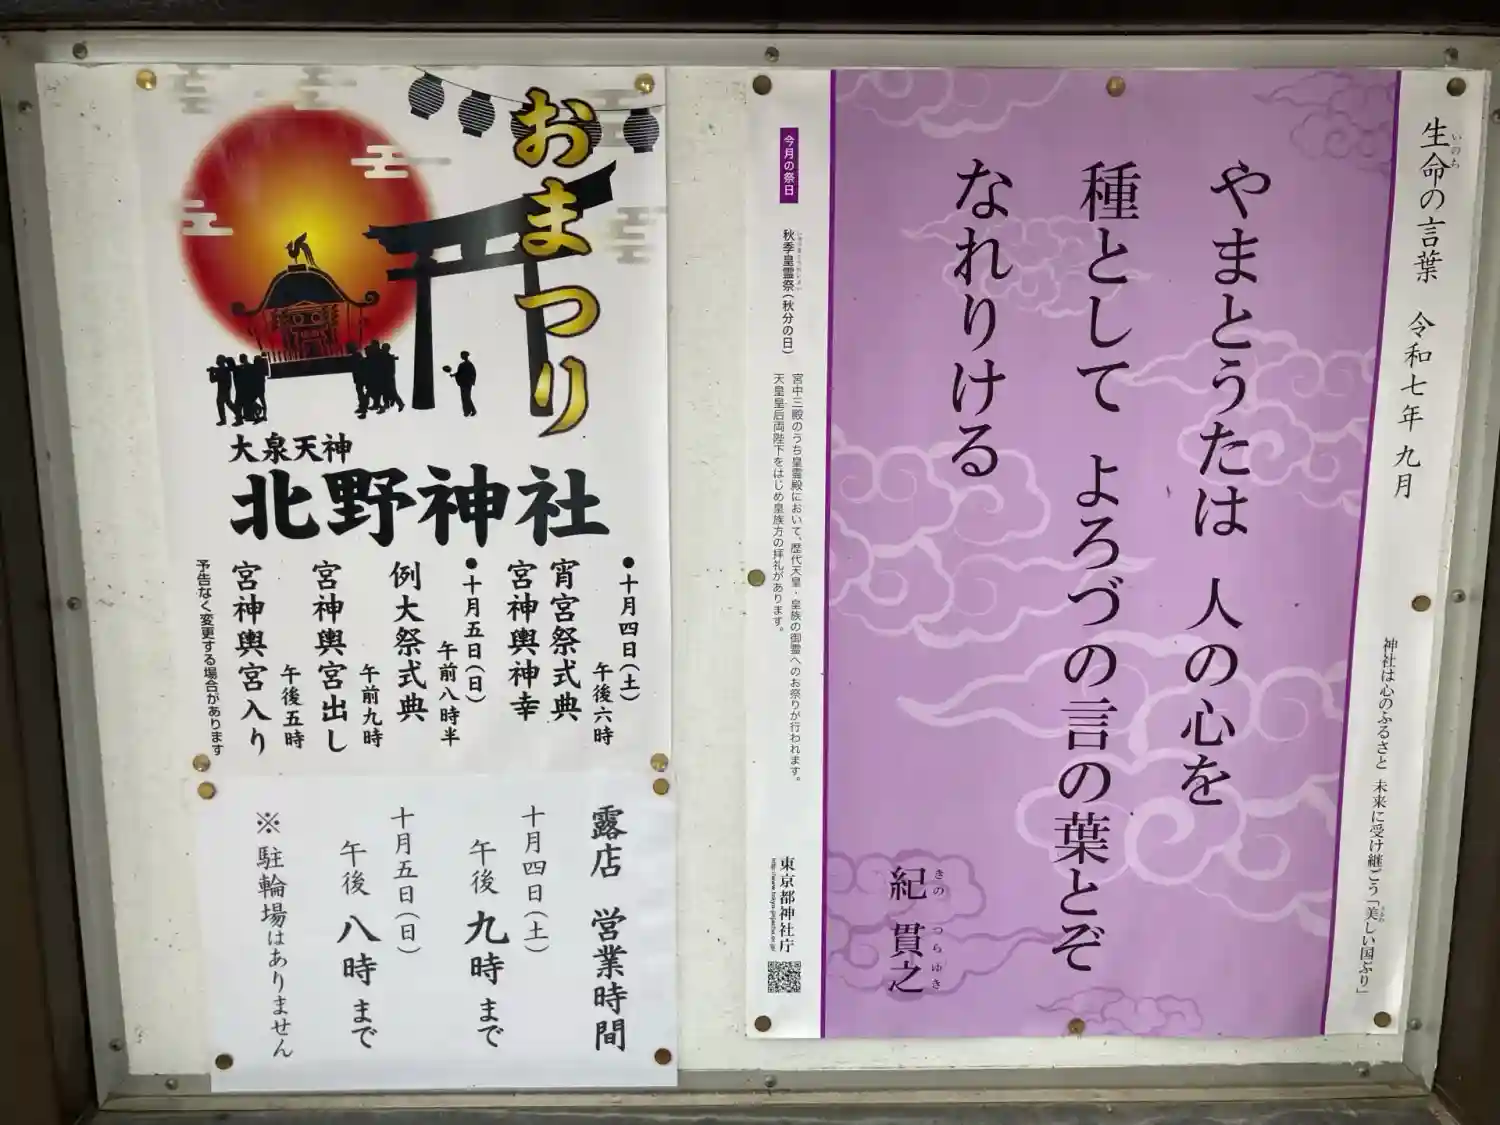 おまつり
大泉天神
北野神社
●十月四日(土)
午後六時
宵宮祭式典
宮神輿神幸
●十月五日(日)
午前八時半
例大祭式典
午前九時
宮神輿宮出し
午後五時
宮神輿宮入り
予告なく変更する場合があります
露店 営業時間
十月四日(土)
午後九時まで
十月五日(日)
午後八時まで
※駐輪場はありません
生命の言葉 令和七年九月
いのち
神社は心のふるさと 未来に受け継ごう「美しい国ぶり」
やまとうたは 人の心を
種として よろづの言の葉とぞ
なれりける
紀 貫之
きの つらゆき
今月の祭日
秋季皇霊祭(秋分の日)
宮中三殿のうち皇霊殿において、歴代天皇・皇族の御霊へのお祭りが行われます。
天皇皇后両陛下をはじめ皇族方の拝礼があります。
東京都神社庁